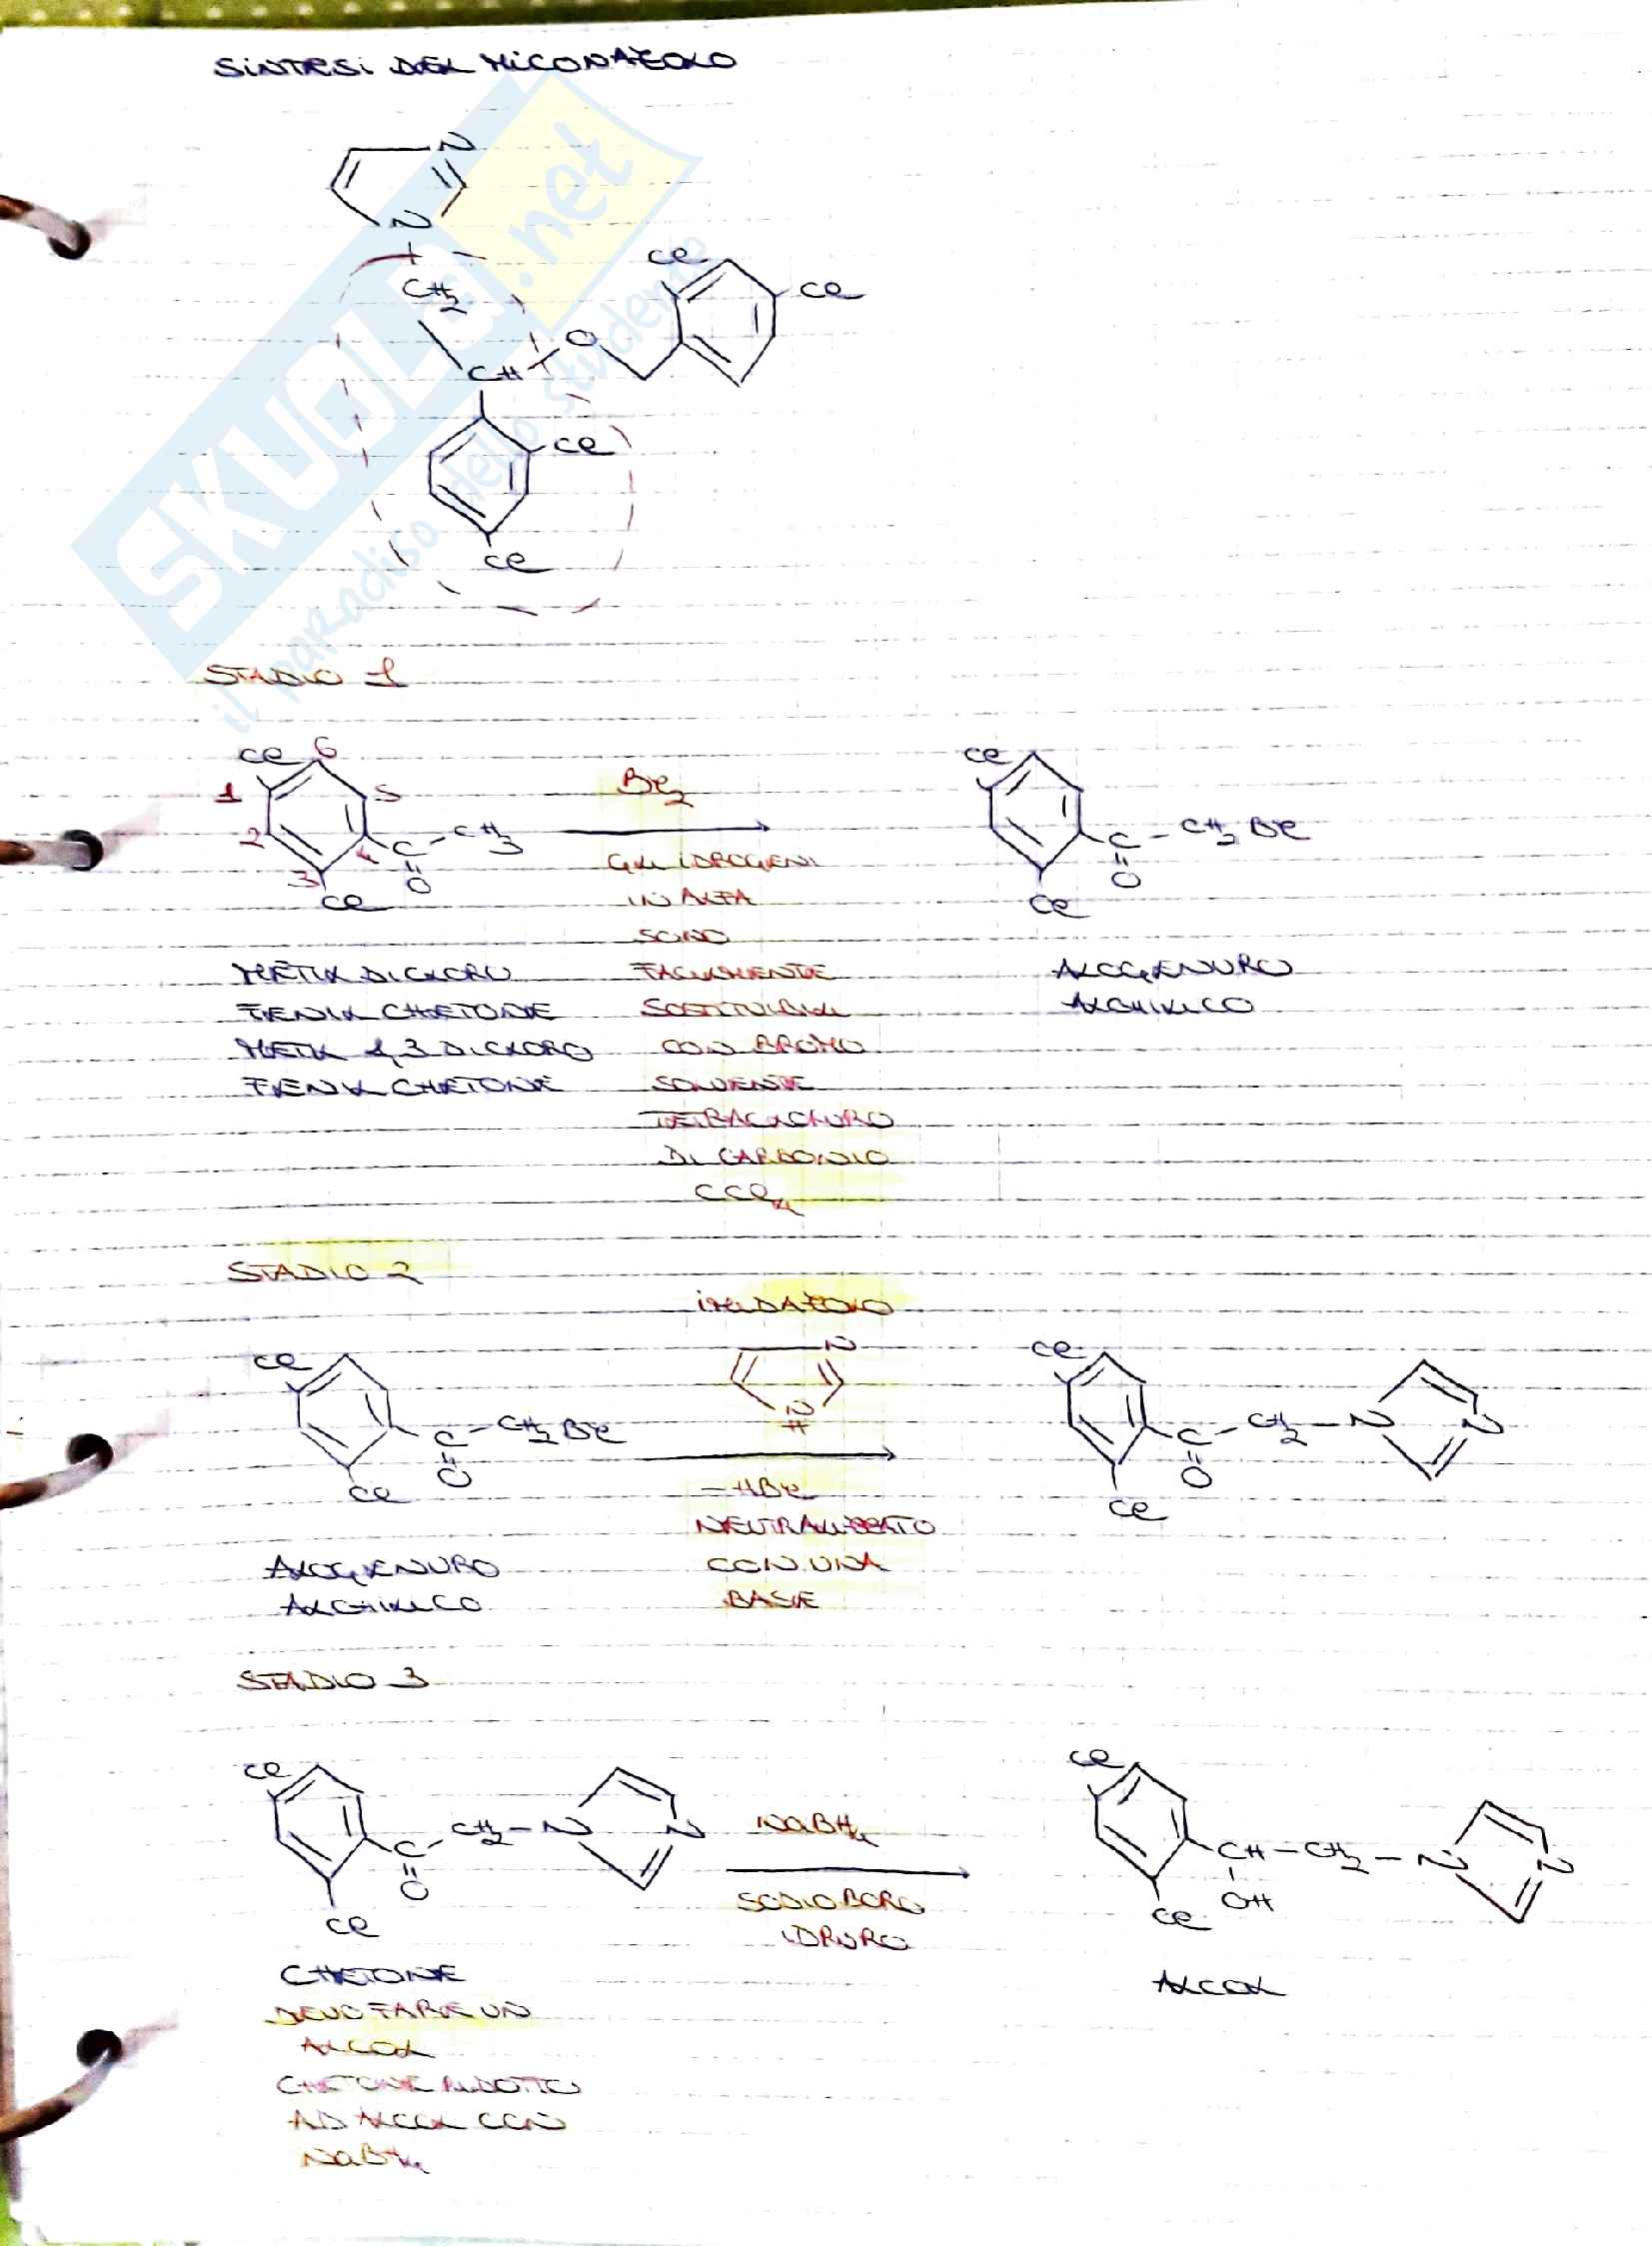 SINTESI DEL MICONAZOLO
N
N
CH2
Cl
Cl
O
CH
Cl
Cl
SKUOLA.net
il paradiso dello studente
STADIO 1
Cl 6
1 5
2 4 C - CH3
3 O
Cl
Br2
GLI IDROGENI
IN ALFA
SONO
FACILMENTE
SOSTITUIBILI
CON BROMO
SOLVENTE
TETRACLORURO
DI CARBONIO
CCl4
Cl
C - CH2 Br
O
Cl
METIL DICLORO
FENIL CHETONE
METIL 1,3 DICLORO
FENIL CHETONE
ALOGENURO
ALCHILICO
STADIO 2
IMIDAZOLO
Cl
C - CH2 Br
O
Cl
N
N
H
- HBr
NEUTRALIZZATO
CON UNA
BASE
Cl
C - CH2 - N N
O
Cl
ALOGENURO
ALCHILICO
STADIO 3
Cl
C - CH2 - N N
O
Cl
NaBH4
SODIO BORO
IDRURO
Cl
CH - CH2 - N N
OH
Cl
CHETONE
DEVO FARE UN
ALCOL
CHETONE RIDOTTO
AD ALCOL CON
NaBH4
ALCOL